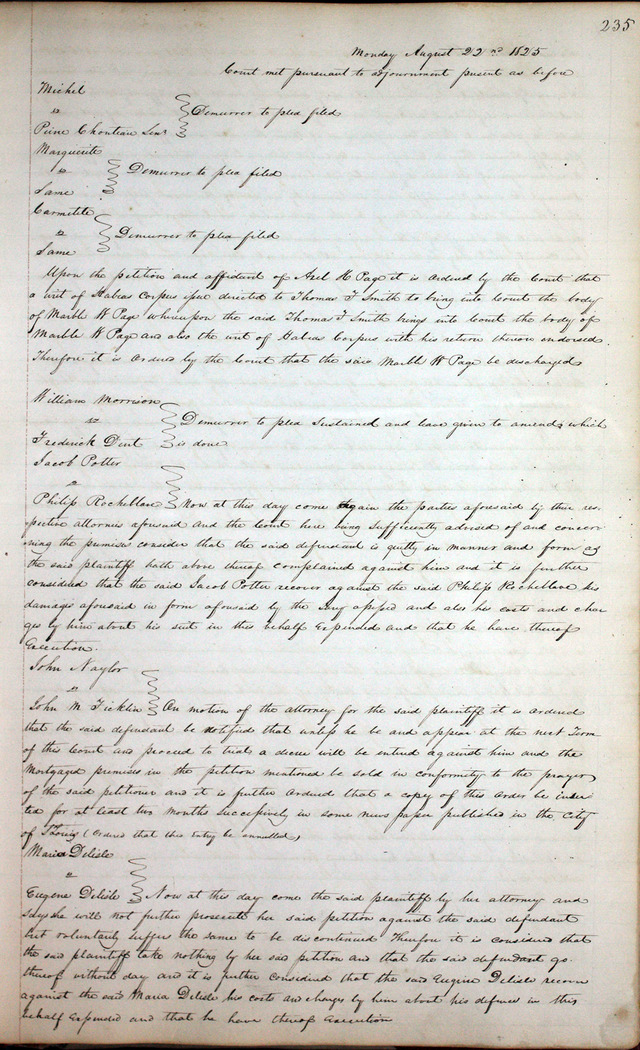 235
Monday August 22nd 1825
Court met pursuant to adjournment present as before
Michel
vs
Demurrer to plea filed
Pierre Chouteau Senr
Marguerite
vs
Demurrer to plea filed
Same
Carmelite
vs
Demurrer to plea filed
Same
Upon the petition and affidavit of Axel H Page it is ordered by the Court that
a writ of Habeas Corpus issue directed to Thomas F Smith to bring into Court the body
of Marble W Page whereupon the said Thomas F Smith brings into Court the body of
Marble W Page and also the writ of Habeas Corpus with his return thereon endorsed.
Therefore it is ordered by the Court that the said Marble W Page be discharged
William Morrison
vs
Demurrer to plea Sustained and leave given to amend, which
Frederick Dent is done
Jacob Potter
vs
Philip Rocheblave Now at this day come again the parties aforesaid by their res-
pective attornies aforesaid and the Court here being Sufficiently advised of and concer-
ning the premises consider that the said defendant is guilty in manner and form as
the said plaintiff hath above thereof complained against him and it is further
considered that the said Jacob Potter recover against the said Philip Rocheblave his
damages aforesaid in form aforesaid by the Jury assessed and also his costs and char
ges by him about his suit in this behalf Expended and that he have thereof
Execution.
John Naylor
vs
John M Ficklin On motion of the attorney for the said plaintiff it is ordered
that the said defendant be notified that unless he be and appear at the next Term
of this Court and proceed to trial a decree will be entered against him and the
Mortgaged premises in the petition mentioned be sold in conformity to the prayer
of the said petitioner and it is further ordered that a copy of this Order be inser
ted for at least two months successively in some news paper published in the City
of St Louis (Ordered that this Entry be annulled)
Maria Delisle
vs
Eugene Delisle Now at this day come the said plaintiff by her attorney and
says she will not further prosecute her said petition against the said defendant
but voluntarily suffers the same to be discontinued Therefore it is considered that
the said plaintiff take nothing by her said petition and that the said defendant go
thereof without day and it is further considered that the said Eugene Delisle recover
against the said Maria Delisle his costs and charges by him about his defence in this
behalf Expended and that he have thereof Execution